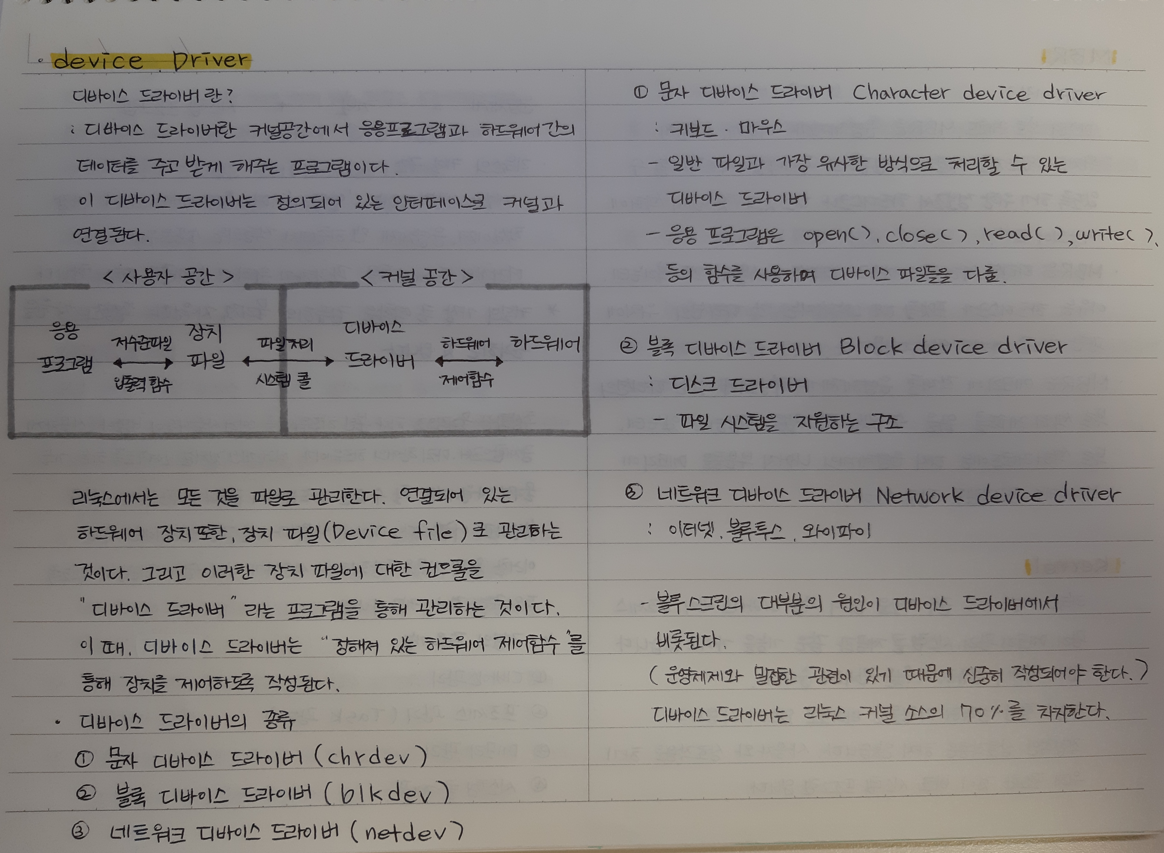 · device Driver
디바이스 드라이버란?
: 디바이스 드라이버란 커널공간에서 응용프로그램과 하드웨어간의
데이터를 주고 받게 해주는 프로그램이다.
이 디바이스 드라이버는 정의되어 있는 인터페이스로 커널과
연결된다.
< 사용자 공간 > < 커널 공간 >
응용 프로그램
저수준파일 입출력함수
장치 파일
파일처리 시스템 콜
디바이스 드라이버
하드웨어 제어함수
하드웨어
리눅스에서는 모든 것을 파일로 관리한다. 연결되어 있는
하드웨어 장치또한, 장치 파일(Device file)로 관리하는
것이다. 그리고 이러한 장치 파일에 대한 컨트롤을
"디바이스 드라이버" 라는 프로그램을 통해 관리하는 것이다.
이 때, 디바이스 드라이버는 "정해져 있는 하드웨어 제어함수"를
통해 장치를 제어하도록 작성된다.
· 디바이스 드라이버의 종류
① 문자 디바이스 드라이버 (chrdev)
② 블록 디바이스 드라이버 (blkdev)
③ 네트워크 디바이스 드라이버 (netdev)
① 문자 디바이스 드라이버 Character device driver
: 키보드 · 마우스
- 일반 파일과 가장 유사한 방식으로 처리할 수 있는
디바이스 드라이버
- 응용 프로그램은 open(), close(), read(), write(),
등의 함수를 사용하여 디바이스 파일들을 다룸.
② 블록 디바이스 드라이버 Block device driver
: 디스크 드라이버
- 파일 시스템을 지원하는 구조
③ 네트워크 디바이스 드라이버 Network device driver
: 이더넷, 블루투스, 와이파이
- 블루스크린의 대부분의 원인이 디바이스 드라이버에서
비롯된다.
(운영체제와 밀접한 관련이 있기 때문에 신중히 작성되어야 한다.)
디바이스 드라이버는 리눅스 커널 소스의 70%를 차지한다.